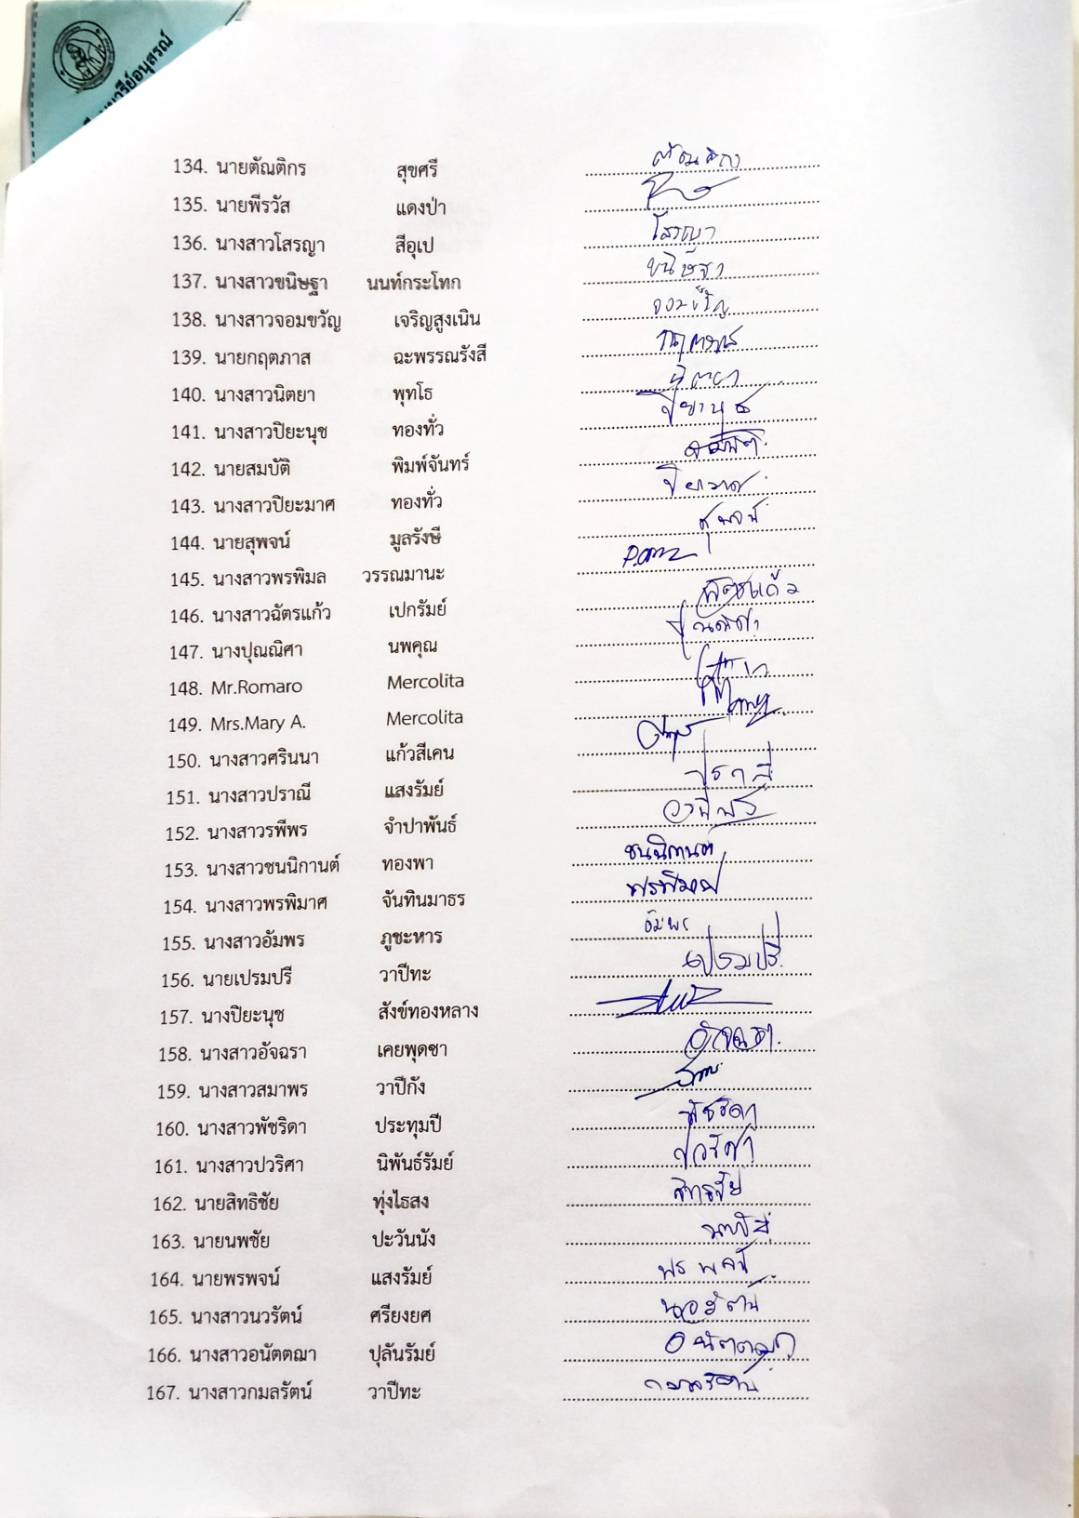 134. นายตัณติกร สุขศรี
135. นายพีรวัส แดงป่า
136. นางสาวโสรญา สีอุเป โสรญา
137. นางสาวขนิษฐา นนท์กระโทก ขนิษฐา
138. นางสาวจอมขวัญ เจริญสูงเนิน จอมขวัญ
139. นายกฤตภาส ฉะพรรณรังสี กฤตภาส
140. นางสาวนิตยา พุทโธ นิตยา
141. นางสาวปิยะนุช ทองทั่ว ปิยะนุช
142. นายสมบัติ พิมพ์จันทร์ สมบัติ
143. นางสาวปิยะมาศ ทองทั่ว ปิยะมาศ
144. นายสุพจน์ มูลรังษี สุพจน์
145. นางสาวพรพิมล วรรณมานะ
146. นางสาวฉัตรแก้ว เปกรัมย์ ฉัตรแก้ว
147. นางปุณณิศา นพคุณ ปุณณิศา
148. Mr.Romaro Mercolita
149. Mrs.Mary A. Mercolita
150. นางสาวศรินนา แก้วสีเคน
151. นางสาวปราณี แสงรัมย์ ปราณี
152. นางสาวรพีพร จำปาพันธ์ รพีพร
153. นางสาวชนนิกานต์ ทองพา ชนนิกานต์
154. นางสาวพรพิมาศ จันทินมาธร พรพิมาศ
155. นางสาวอัมพร ภูชะหาร อัมพร
156. นายเปรมปรี วาปีทะ เปรมปรี
157. นางปิยะนุช สังข์ทองหลาง
158. นางสาวอัจฉรา เคยพุดซา อัจฉรา
159. นางสาวสมาพร วาปีกัง
160. นางสาวพัชริดา ประทุมปี พัชริดา
161. นางสาวปวริศา นิพันธ์รัมย์ ปวริศา
162. นายสิทธิชัย ทุ่งไธสง สิทธิชัย
163. นายนพชัย ปะวันนัง นพชัย
164. นายพรพจน์ แสงรัมย์ พรพจน์
165. นางสาวนวรัตน์ ศรียงยศ นวรัตน์
166. นางสาวอนัตตฌา ปุลันรัมย์ อนัตตฌา
167. นางสาวกมลรัตน์ วาปีทะ กมลรัตน์